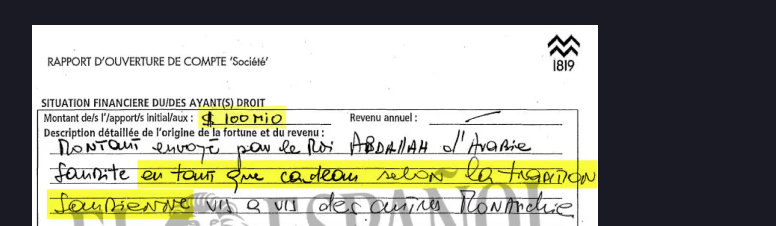 1819
RAPPORT D'OUVERTURE DE COMPTE 'Société'
SITUATION FINANCIERE DU/DES AYANT(S) DROIT
Montant de/s l'/apport/s initial/aux : $ 100 MIO Revenu annuel : —
Description détaillée de l'origine de la fortune et du revenu :
MONTANT envoyé par le Roi ABDALLAH d'Arabie
Saudite en tant que cadeau selon la tradition
Saudienne vis a vis des autres Monarchie
EL ESPAÑOL